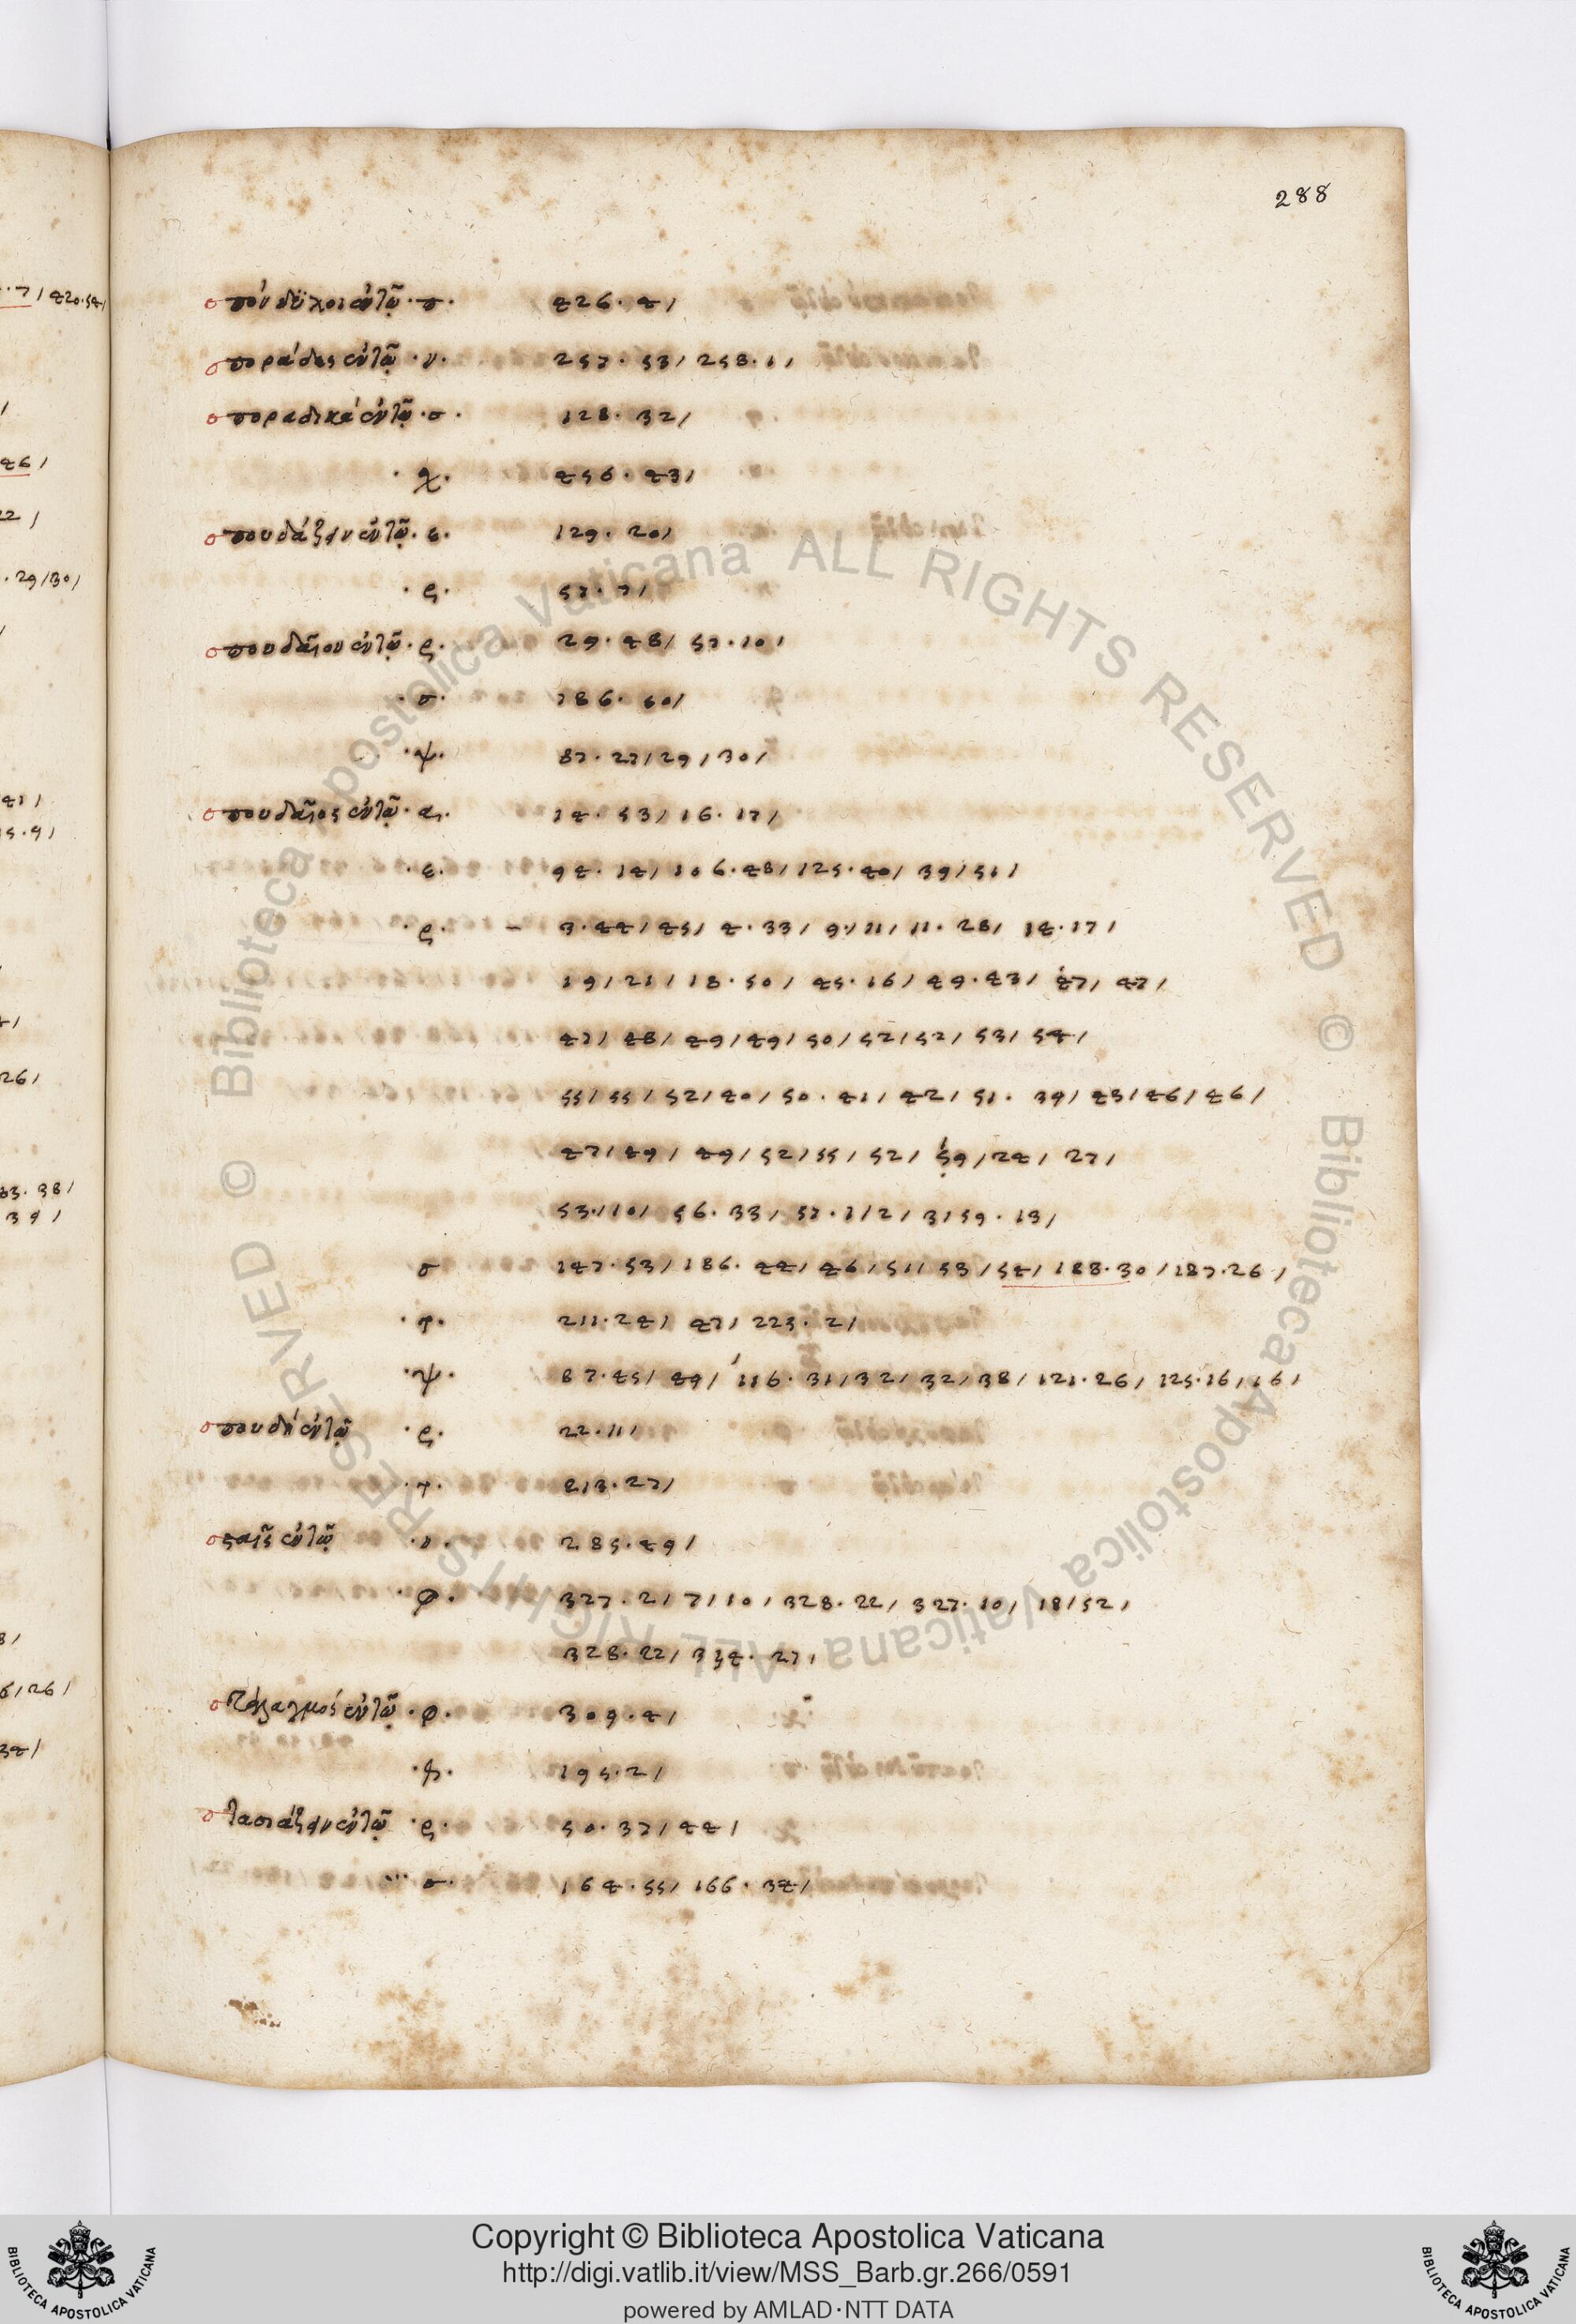 288
σπόνδϋλοι ἐν τῷ · σ · 426 · 4 /
σποράδες ἐν τῷ · ν · 257 · 53 / 258 · 1 /
σποραδικά ἐν τῷ · σ · 128 · 32 /
· χ · 456 · 43 /
σπουδάζειν ἐν τῷ · ε · 129 · 20 /
· ς · 57 · 7 /
σπουδαῖον ἐν τῷ · ς · 29 · 48 / 57 · 10 /
· σ · 186 · 50 /
· ψ · 87 · 27 / 29 / 30 /
σπουδαῖος ἐν τῷ · α · 14 · 53 / 16 · 17 /
· ε · 94 · 14 / 106 · 48 / 125 · 40 / 39 / 51 /
· ς · – 3 · 44 / 45 / 4 · 33 / 9 · / 11 / 11 · 28 / 14 · 17 /
19 / 21 / 18 · 50 / 45 · 16 / 49 · 43 / 47 / 47 /
47 / 48 / 49 / 49 / 50 / 52 / 52 / 53 / 54 /
55 / 55 / 52 / 40 / 50 · 41 / 42 / 51 · 39 / 43 / 46 / 46 /
47 / 49 / 49 / 52 / 55 / 52 / 59 / 24 / 27 /
53 · / 10 / 56 · 33 / 57 · 1 / 2 / 3 / 59 · 13 /
σ 147 · 53 / 186 · 44 / 46 / 51 / 53 / 54 / 188 · 30 / 187 · 26 /
· τ · 211 · 24 / 47 / 223 · 2 /
· ψ · 87 · 45 / 49 / 116 · 31 / 32 / 32 / 38 / 121 · 26 / 125 · 16 / 16 /
σπουδή ἐν τῷ · ς · 22 · 11 /
· τ · 213 · 27 /
σταῖς ἐν τῷ · ν · 285 · 49 /
· φ · 327 · 2 / 7 / 10 / 328 · 22 / 327 · 10 / 18 / 52 /
328 · 22 / 334 · 27 /
ἐν τῷ · φ · 309 · 4 /
195 · 2 /
στασιάζειν ἐν τῷ · ς · 50 · 37 / 44 /
· σ · 164 · 55 / 166 · 34 /
Copyright © Biblioteca Apostolica Vaticana
http://digi.vatlib.it/view/MSS_Barb.gr.266/0591
powered by AMLAD·NTT DATA